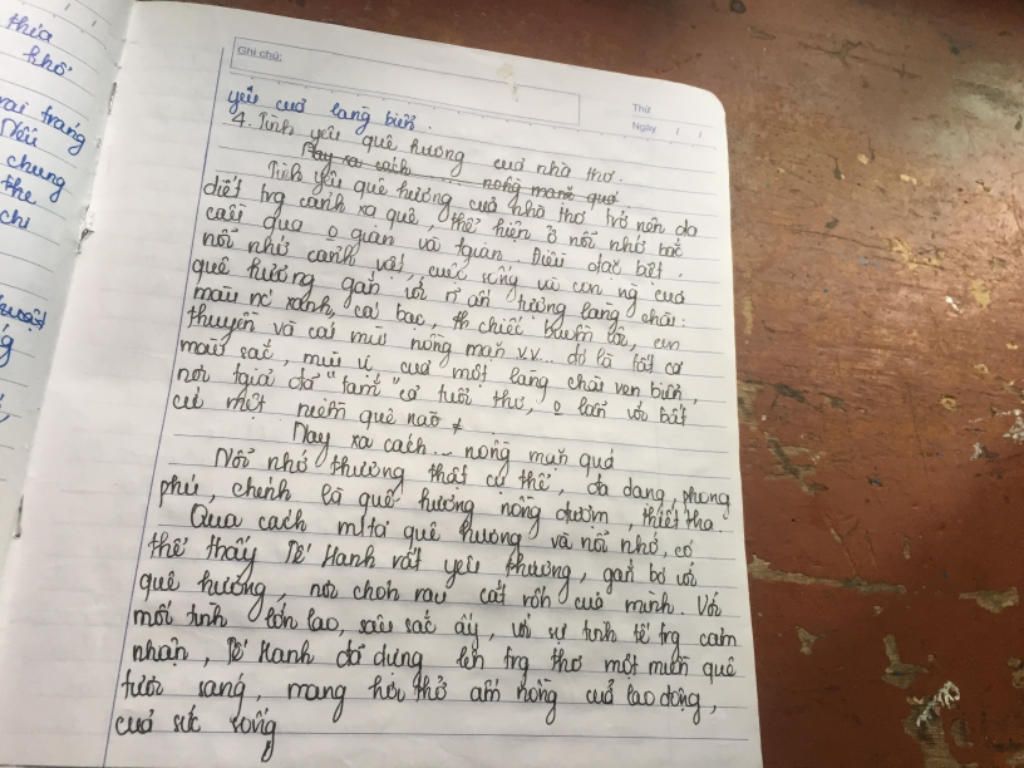 thia
khổ
rai trang
Nỗi
chung
the
chi
Ghi chú:
Thứ
Ngày / /
yêu cuả làng biển.
4. Tình yêu quê hương cuả nhà thơ.
Nay xa cách nồng mặn quá
Tình yêu quê hương cuả nhà thơ trở nên da
diết trg cảnh xa quê, thể hiện ở nỗi nhớ bất
câú qua o gian và tgian. Điều đặc biệt.
nỗi nhớ cảnh vật, cuộc sống và con ng cuả
quê hương gắn với ấn tượng làng chài:
màu nc xanh, cá bạc, th chiếc buồm vôi, con
thuyền và cái mùi nồng mặn v.v... đó là tất cả
màu sắc, mùi vị cuả một làng chài ven biển,
nơi tgiả đã "tắm" cả tuổi thơ, o lẫn với bất
cứ một miền quê nào ≠
Nay xa cách... nồng mặn quá
Nỗi nhớ thương thật cụ thể, đa dạng, phong
phú, chính là quê hương nồng đượm, thiết tha
Qua cách mtả quê hương và nỗi nhớ, có
thể thấy Tế Hanh rất yêu thương, gắn bó với
quê hương, nơi chôn rau cắt rốn cuả mình. Với
mối tình lớn lao, sâu sắc ấy, với sự tinh tế trg cảm
nhận, Tế Hanh đã dựng lên trg thơ một miền quê
tươi sáng, mang hơi thở ấm nồng cuả lao động,
cuả sức sống